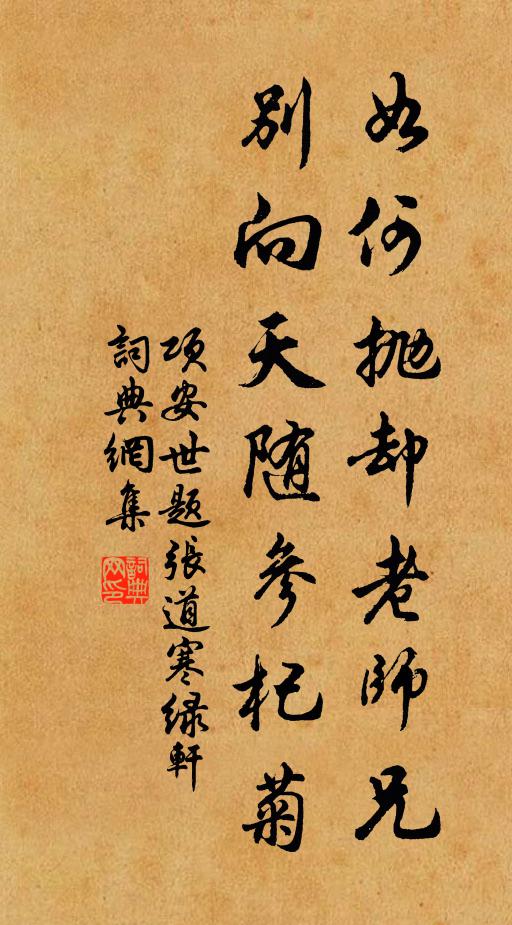 如何抛却老師兄
别向天随參杞菊
项安世题張道寒绿軒
詞典網集
詞典網印